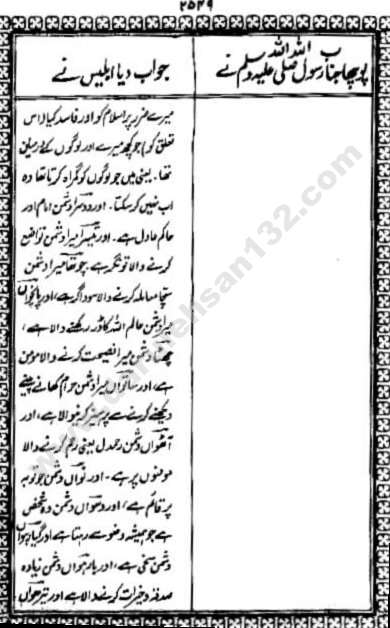 ۲۵۴۹
پوچھا جناب رسول اللہ صلی اللہ علیہ وسلم نے
جواب دیا ابلیس نے
میرے ضرر پر اسلام کو اور فاسد کیا (اس
تعلق کو) جو کچھ میرے اور لوگوں کے درمیان
تھا۔ یعنی میں جو لوگوں کو گمراہ کرتا تھا وہ
اب نہیں کر سکتا۔ اور دوسرا دشمن امام اور
حاکم عادل ہے۔ اور تیسرا میرا دشمن تواضع
کرنے والا تونگر ہے۔ چوتھا میرا دشمن
سچا معاملہ کرنے والا سوداگر ہے، اور پانچواں
میرا دشمن عالم اللہ کا ڈر رکھنے والا ہے،
چھٹا دشمن میرا نصیحت کرنے والا مومن
ہے، اور ساتواں میرا دشمن حرام کھانے پینے
دیکھنے کرنے سے پرہیز کرنیوالا ہے، اور
آٹھواں دشمن رحمدل یعنی رحم کرنے والا
مومنوں پر ہے۔ اور نواں دشمن جو توبہ
پر قائم ہے، اور دسواں دشمن وہ شخص
ہے جو ہمیشہ وضو سے رہتا ہے اور گیارہواں
دشمن سخی ہے، اور بارہواں دشمن زیادہ
صدقہ و خیرات کرنے والا ہے اور تیرھواں
www.Faizahmedehsan132.com